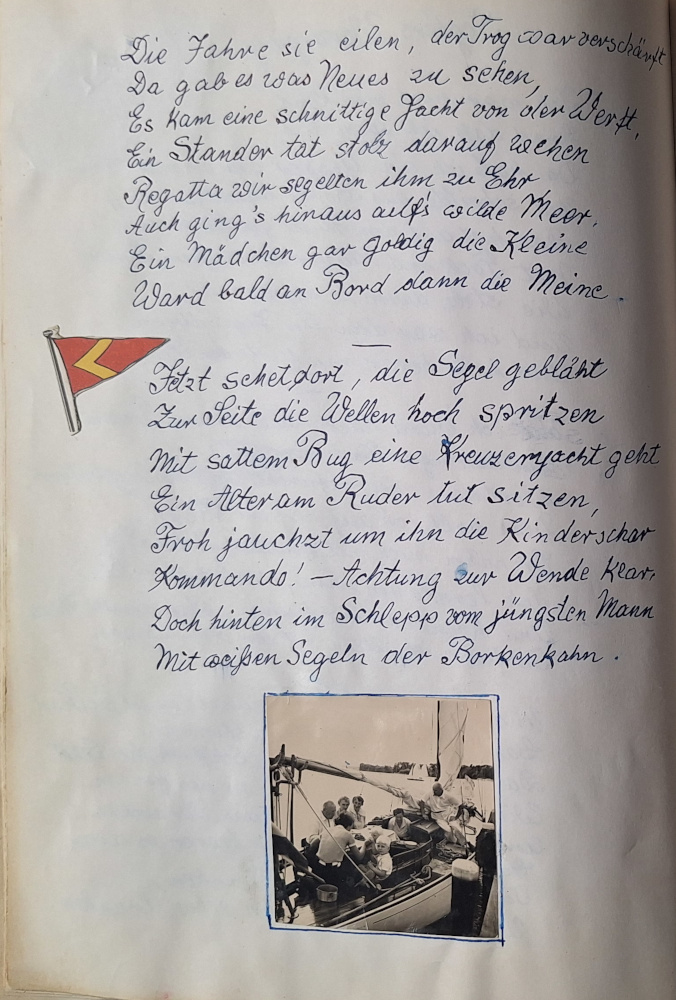 Die Jahre sie eilen, der Trog war verschärft
Da gab es was Neues zu sehen,
Es kam eine schnittige Jacht von der Werft,
Ein Stander tat stolz darauf wehen
Regatta wir segelten ihm zu Ehr
Auch ging's hinaus auf's wilde Meer.
Ein Mädchen gar goldig die Kleine
Ward bald an Bord dann die Meine.
—
Jetzt sehet dort, die Segel gebläht
Zur Seite die Wellen hoch spritzen
Mit sattem Bug eine Kreuzerjacht geht
Ein Alter am Ruder tut sitzen,
Froh jauchzt um ihn die Kinderschar
Kommando! — Achtung zur Wende klar,
Doch hinten im Schlepp vom jüngsten Mann
Mit weißen Segeln der Borkenkahn.